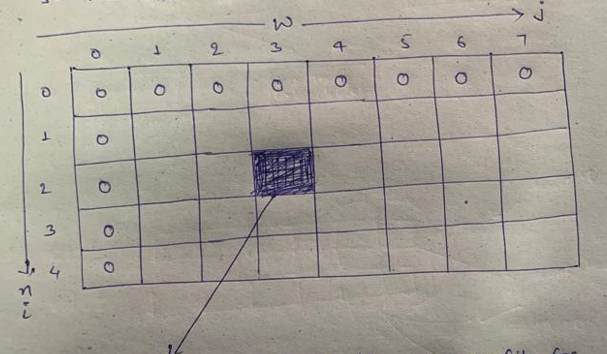 W j
0 1 2 3 4 5 6 7
0 0 0 0 0 0 0 0 0
1 0
2 0
3 0
4 0
n
i